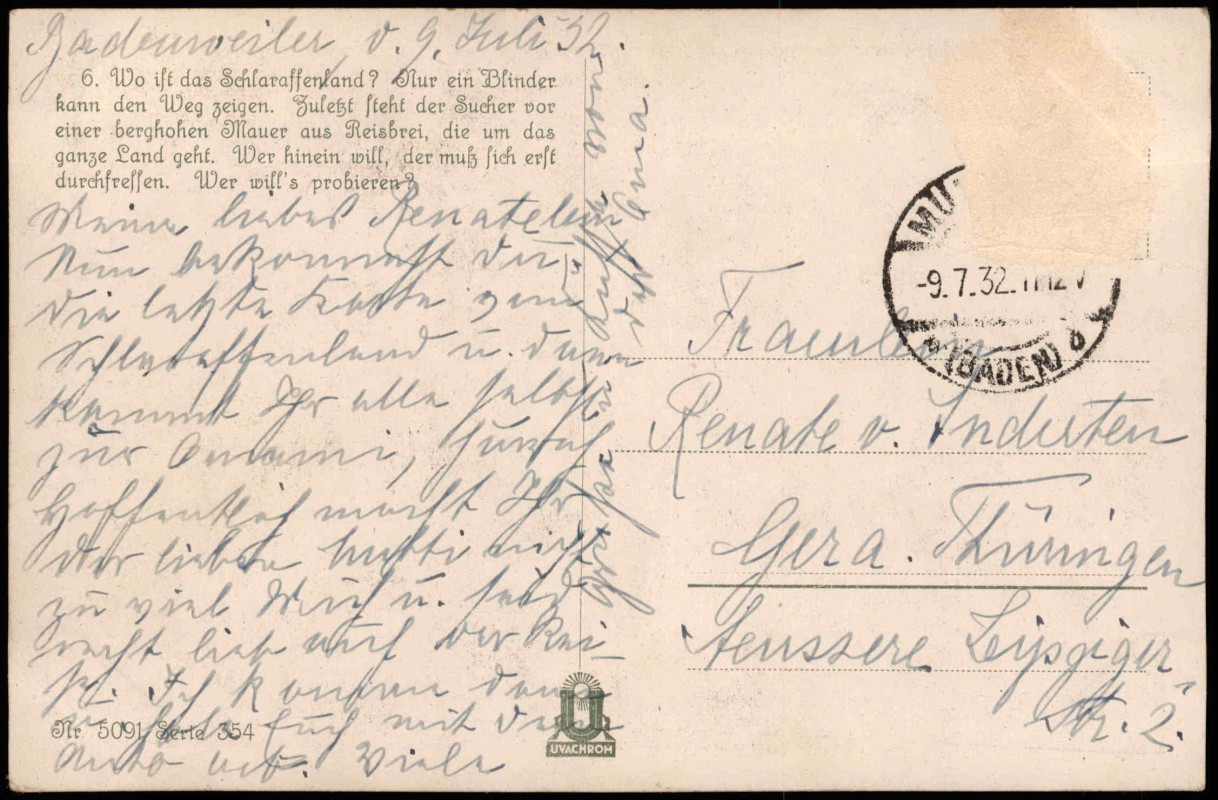 Badenweiler, d. 9. Juli 32.
6. Wo iſt das Schlaraffenland? Nur ein Blinder
kann den Weg zeigen. Zuletzt ſteht der Sucher vor
einer berghohen Mauer aus Reisbrei, die um das
ganze Land geht. Wer hinein will, der muß ſich erſt
durchfreſſen. Wer will's probieren?
Mein liebes Renatelein
Nun bekommst du
die letzte Karte vom
Schlaraffenland u. dann
kommt Ihr alle selbst
zur Omami, hurrah
Hoffentlich macht Ihr
der lieben Mutti nicht
zu viel Müh u. seid
recht lieb auf der Rei-
se. Ich komme dann
Euch mit dem
Auto ab. Viele
Grüsse von
der Oma.
Nr. 5091 Serie 354
UVACHROM
MÜ
-9.7.32.11-12V
(BADEN)
Fraulein
Renate v.
Gera. Thüringen
Aeussere Leipziger-
Str. 2.